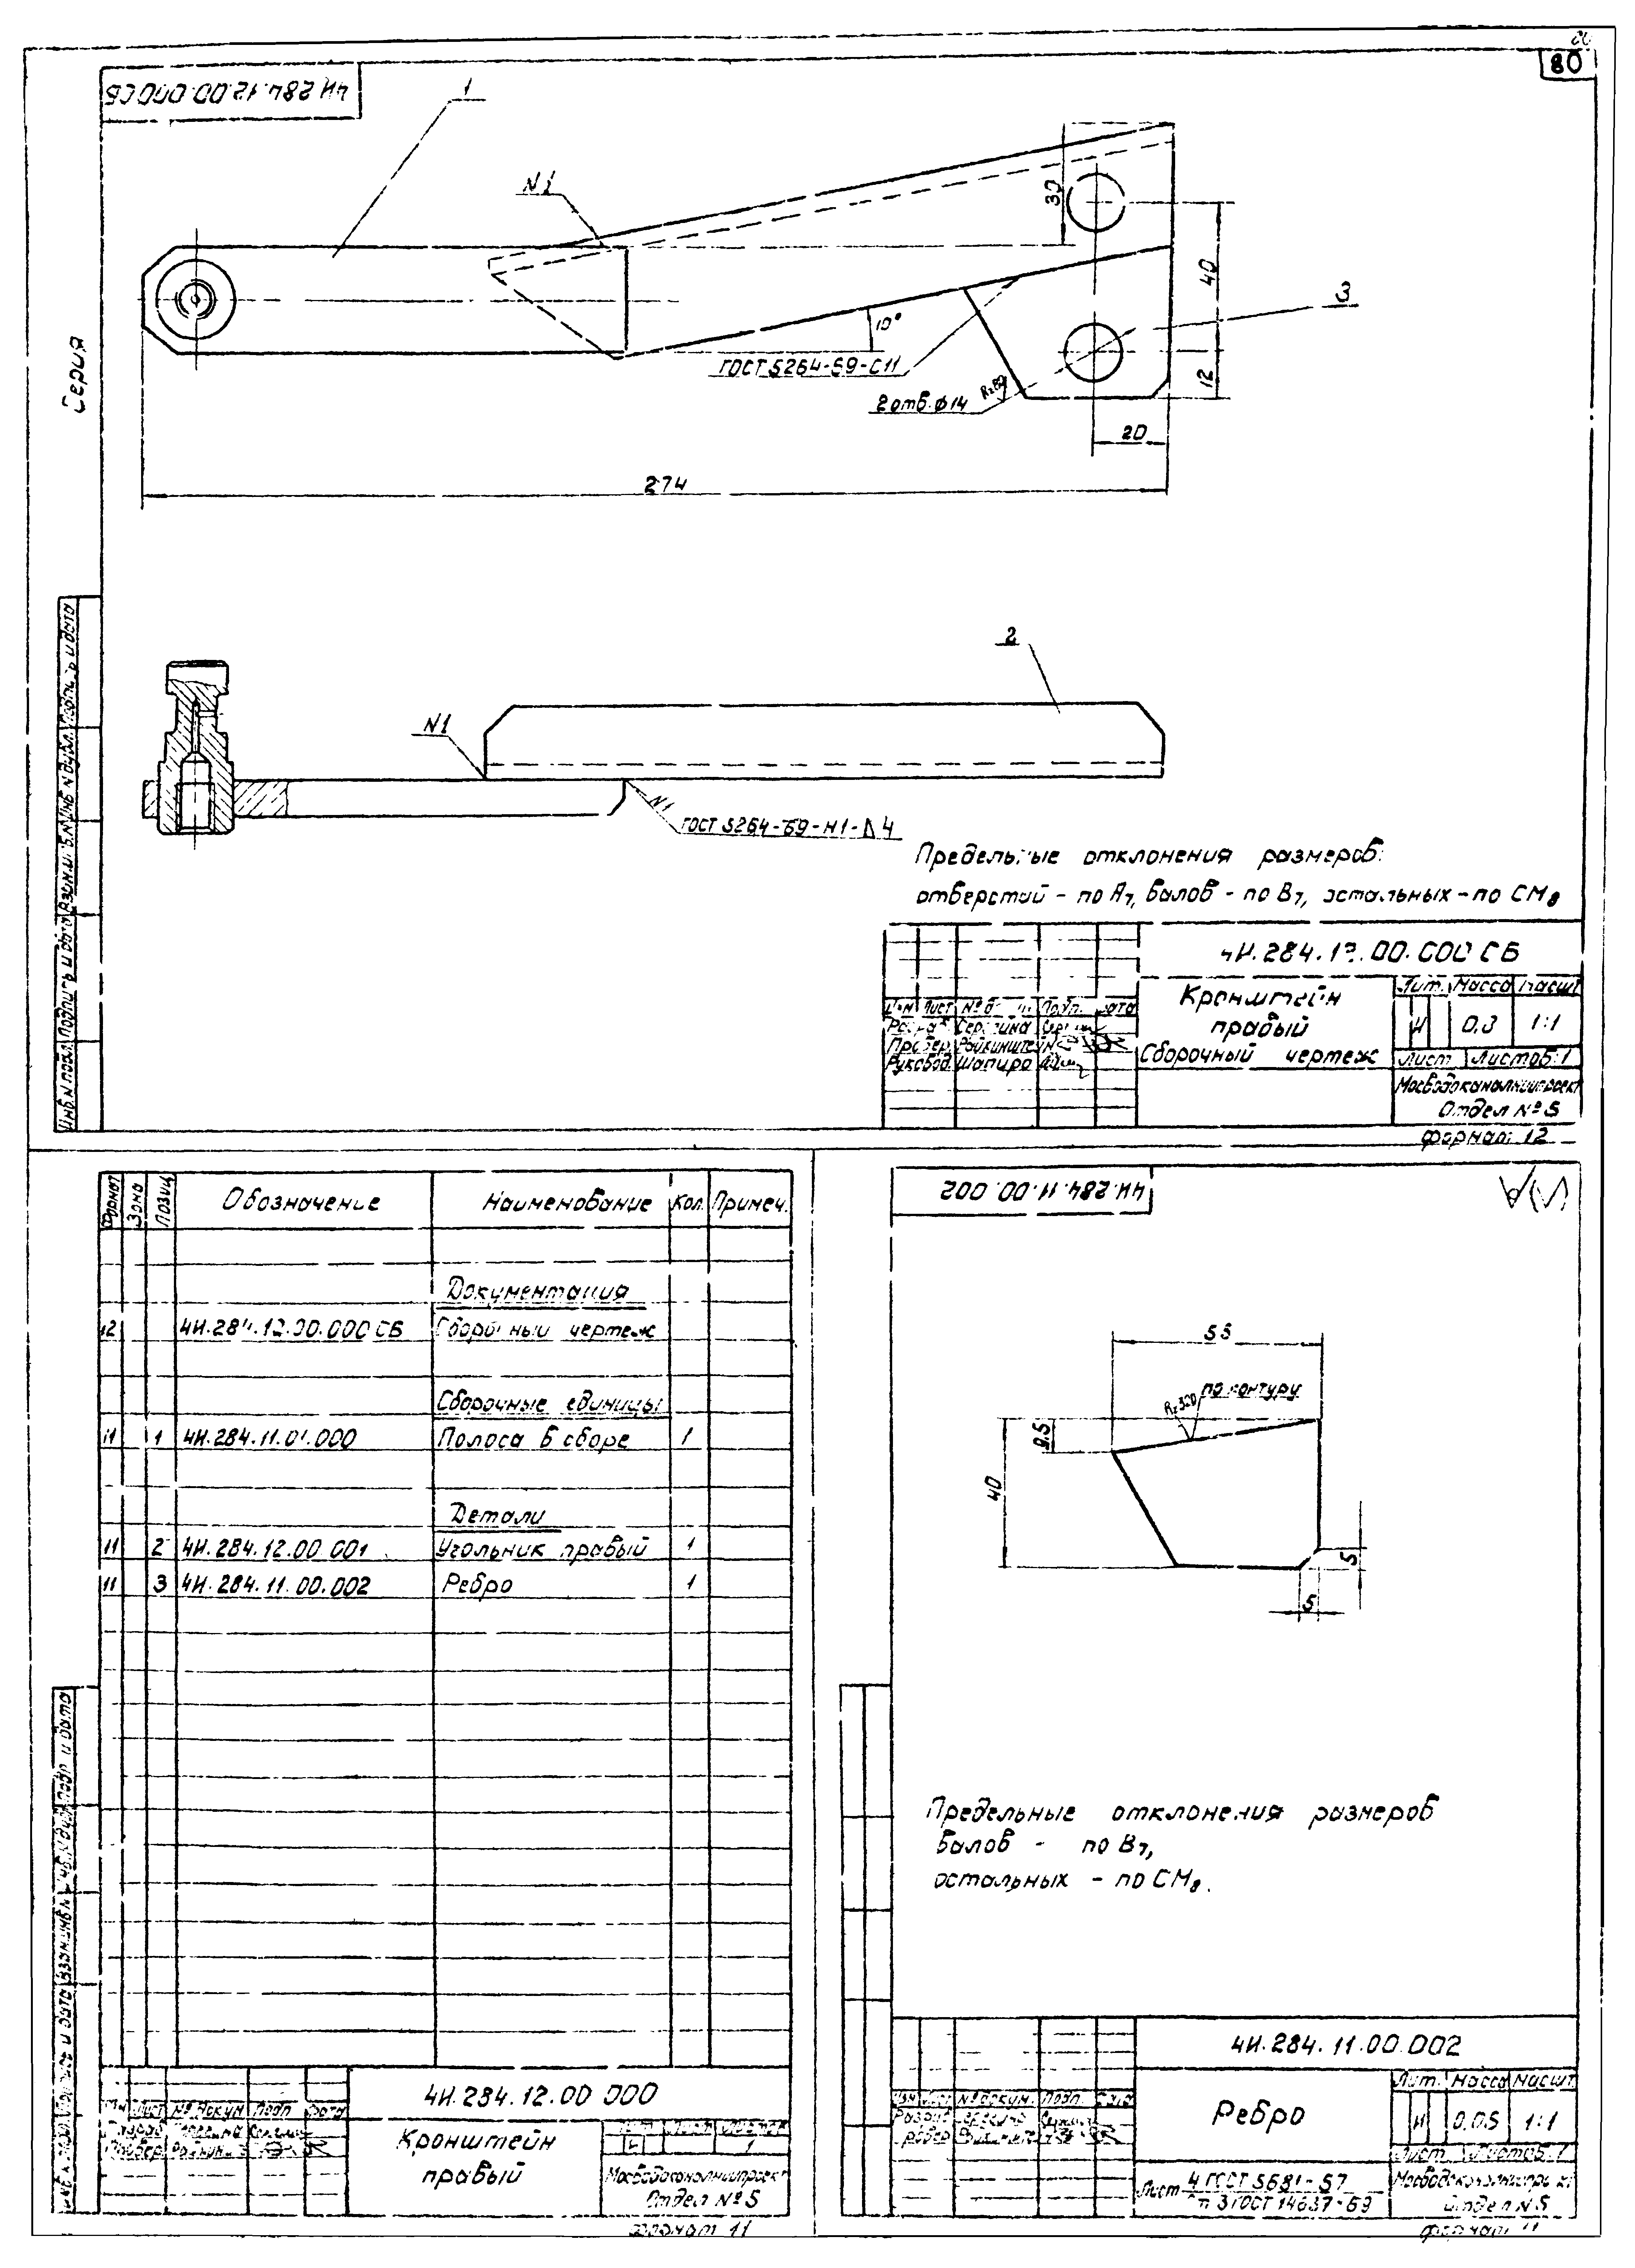 80
4И.284.12.00.000СБ
1
N1
30
40
3
10°
ГОСТ 5264-69-С11
2отв.ф14
Rz80
12
20
274
Серия
2
N1
N1
ГОСТ 5264-69-Н1-△4
Предельные отклонения размеров:
отверстий - по А7, валов - по В7, остальных - по СМ8
4И.284.12.00.000 СБ
Кронштейн
правый
Сборочный чертеж
Лит. Масса Масшт
И 0,3 1:1
Лист Листов:1
Изм Лист № Подп. Дата
Разраб
Провер. Райкинштейн
Руковод. Шапиро
Мосводоканалниипроект
Отдел №5
Формат 12
Инв.N подл. Подпись и дата Взам.инв.N Инв.N дубл. Подпись и дата
Формат Зона Позиц Обозначение Наименование Кол. Примеч.
Документация
12 4И.284.12.00.000 СБ Сборочный чертеж
Сборочные единицы
11 1 4И.284.11.01.000 Полоса в сборе 1
Детали
11 2 4И.284.12.00.001 Угольник правый 1
11 3 4И.284.11.00.002 Ребро 1
4И.284.12.00 000
Кронштейн
правый
Мосводоканалниипроект
Отдел №5
Формат 11
4И.284.11.00.002
55
Rz320 по контуру
9,5
40
5
5
Предельные отклонения размеров
валов - по В7,
остальных - по СМ8.
4И.284.11.00.002
Ребро
Лит. Масса Масшт
И 0,05 1:1
Лист Листов 1
Лист 4 ГОСТ 5681-57
ГОСТ 14637-69
Мосводоканалниипроект
Отдел N5
Формат 11